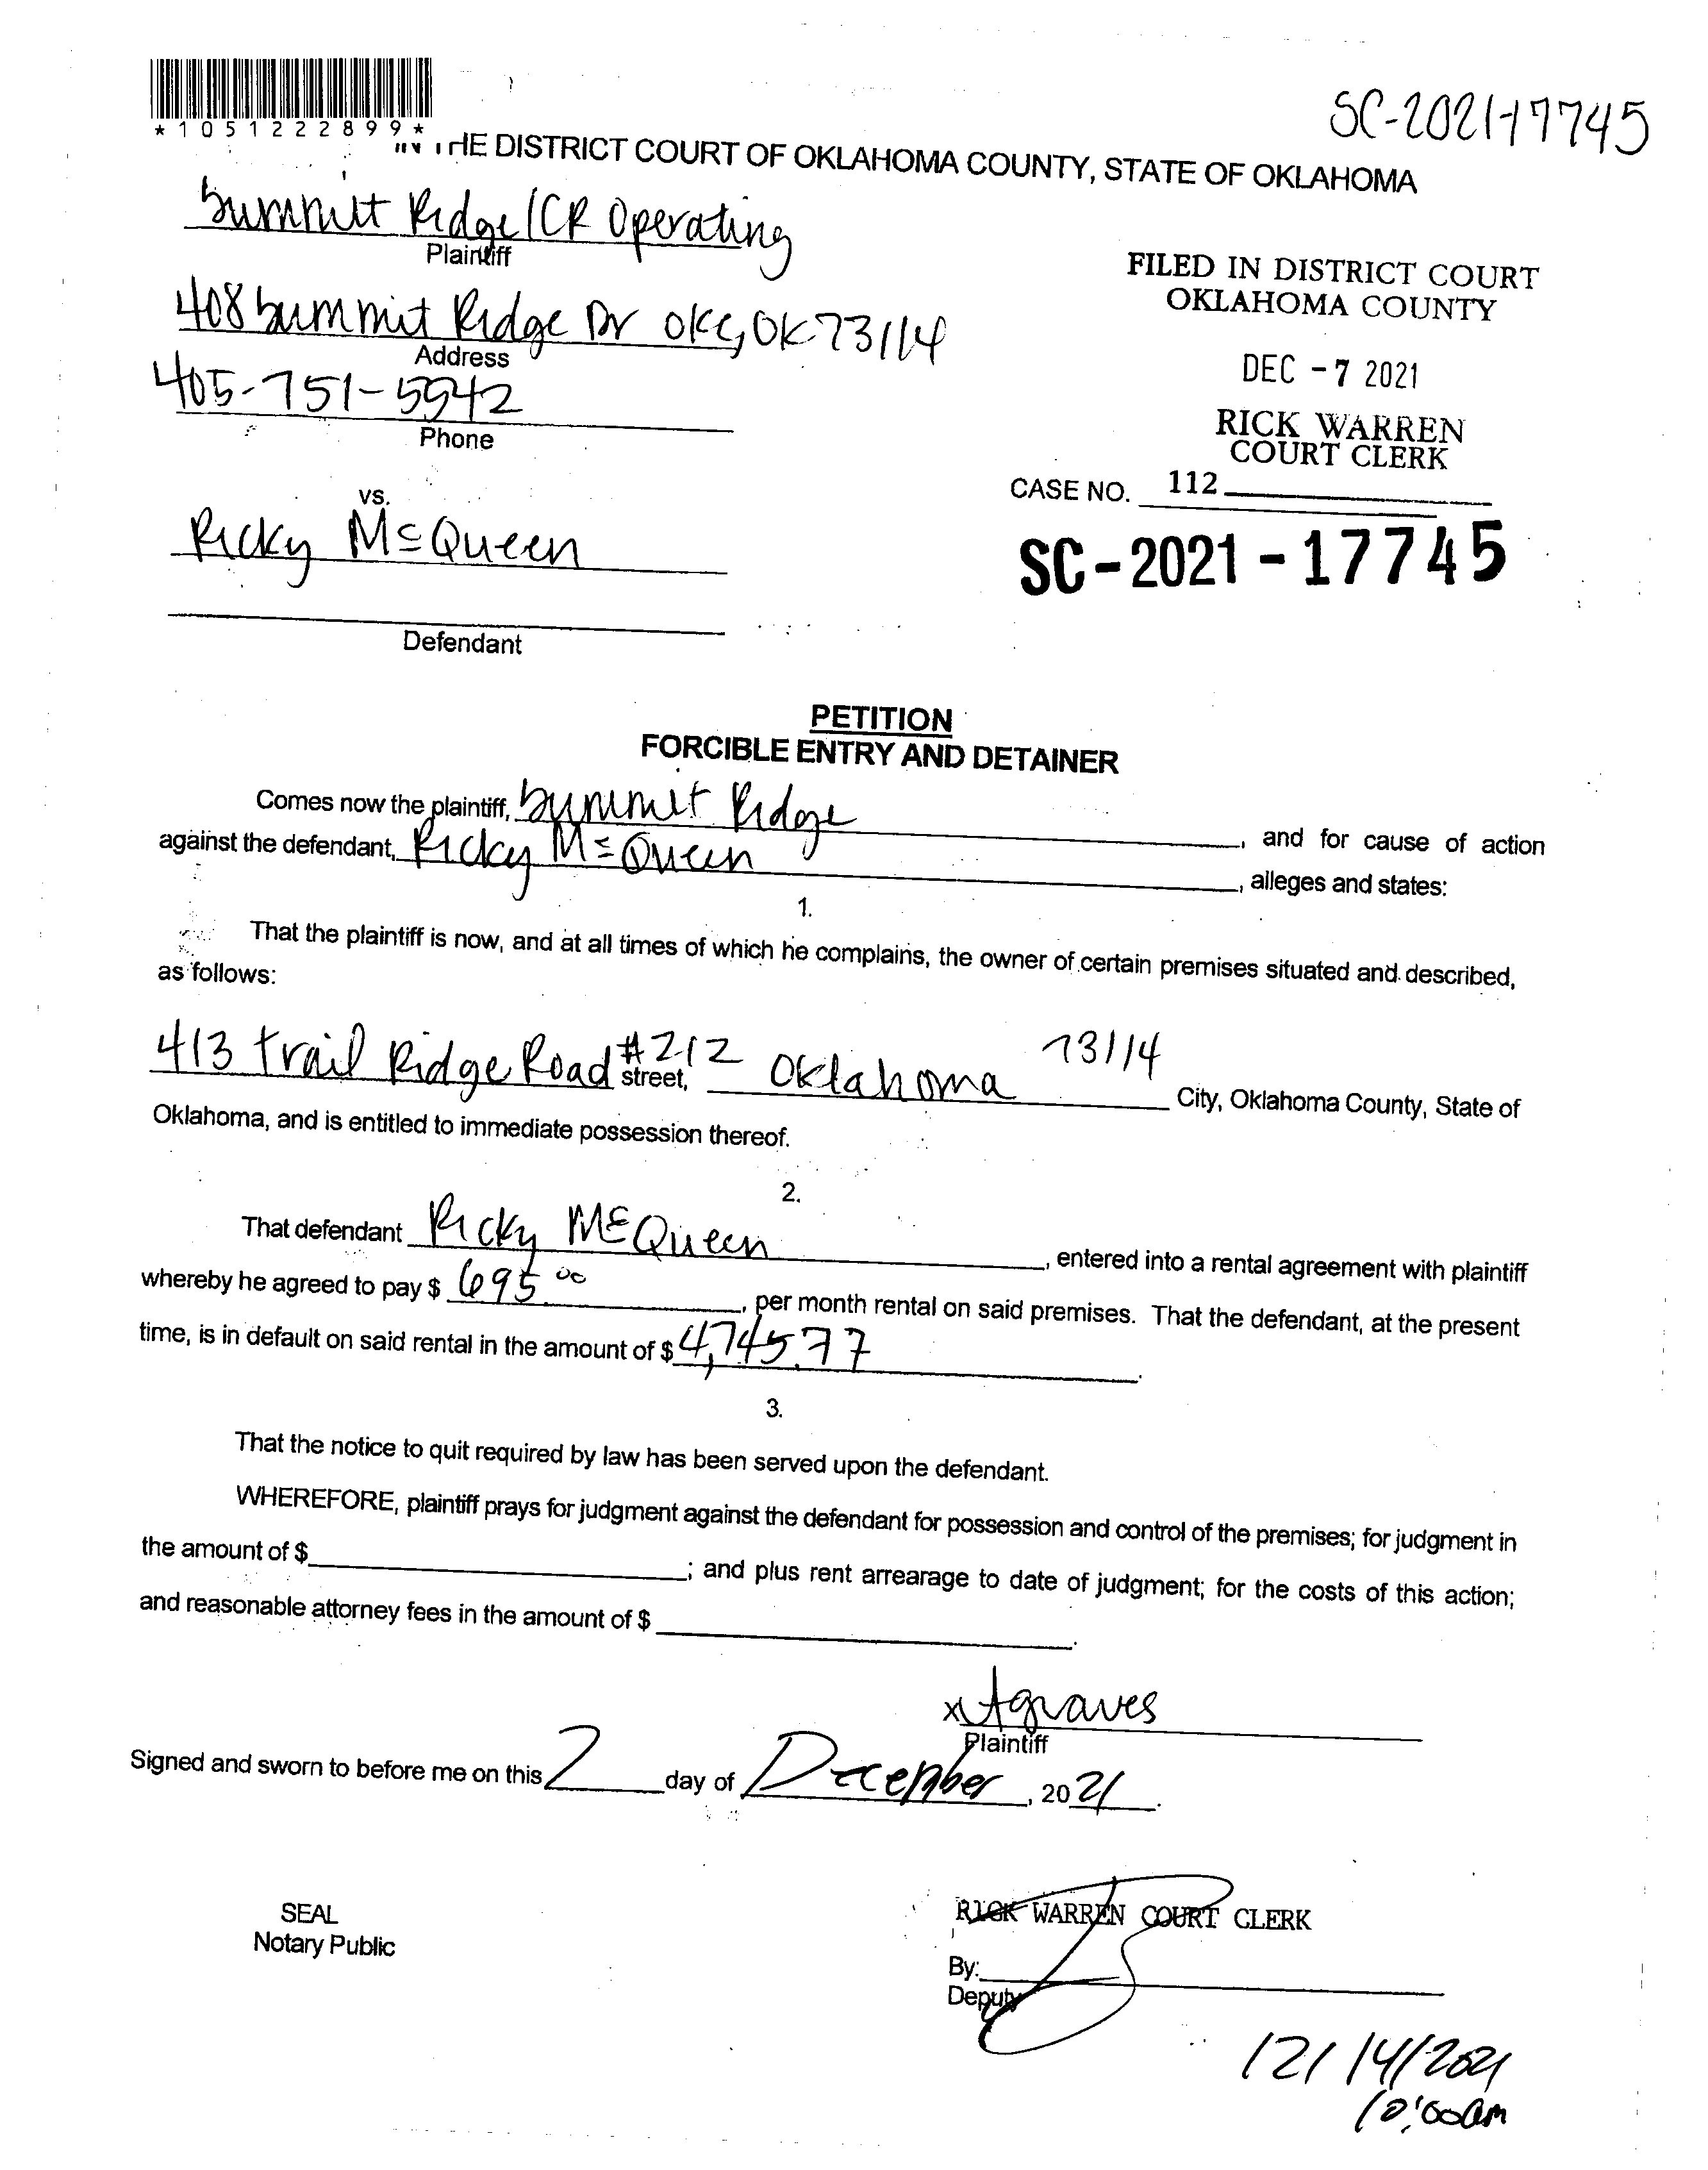 SC-2021-17745
*1051222899*
THE DISTRICT COURT OF OKLAHOMA COUNTY, STATE OF OKLAHOMA
Summit Ridge/CR Operating
Plaintiff
408 Summit Ridge Dr OKC, OK 73114
Address
405-751-5942
Phone
FILED IN DISTRICT COURT
OKLAHOMA COUNTY
DEC - 7 2021
RICK WARREN
COURT CLERK
CASE NO. 112
SC-2021-17745
vs.
Ricky McQueen
Defendant
PETITION
FORCIBLE ENTRY AND DETAINER
Comes now the plaintiff, Summit Ridge, and for cause of action
against the defendant, Ricky McQueen, alleges and states:
1.
That the plaintiff is now, and at all times of which he complains, the owner of certain premises situated and described,
as follows:
413 Trail Ridge Road #212 street, Oklahoma 73114 City, Oklahoma County, State of
Oklahoma, and is entitled to immediate possession thereof.
2.
That defendant Ricky McQueen, entered into a rental agreement with plaintiff
whereby he agreed to pay $ 695.00, per month rental on said premises. That the defendant, at the present
time, is in default on said rental in the amount of $ 4,745.77.
3.
That the notice to quit required by law has been served upon the defendant.
WHEREFORE, plaintiff prays for judgment against the defendant for possession and control of the premises; for judgment in
the amount of $ ; and plus rent arrearage to date of judgment; for the costs of this action;
and reasonable attorney fees in the amount of $ .
x Agraves
Plaintiff
Signed and sworn to before me on this 2 day of December, 2021.
SEAL
Notary Public
RICK WARREN COURT CLERK
By:
Deputy
12/14/2021
10:00am